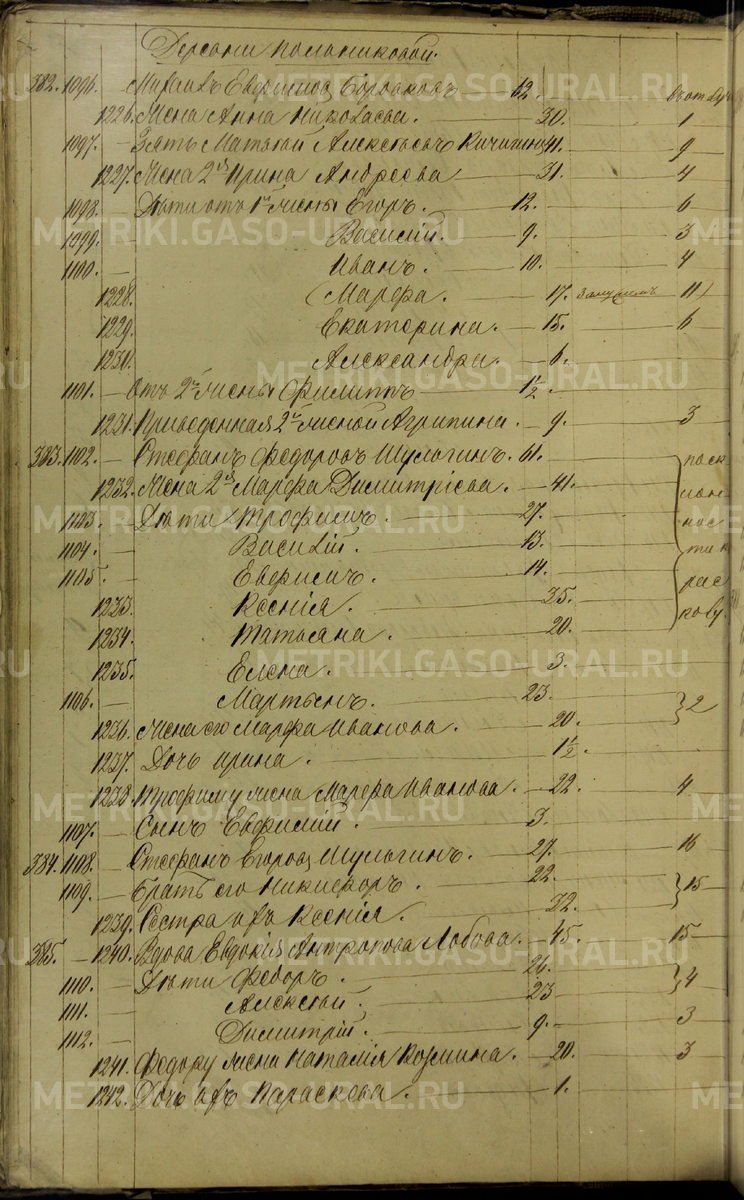 Деревни Польниковой.
382. 1096. — Михаилъ Евфимовъ Боровковъ — 62.
1226. Жена Анна Николаева. — 30. — 1
1097. — Зять Матвѣй Алексѣевъ Кичигинъ 41. — 9
1227. Жена 2я Ирина Андреева — 31. — 4
1098. — Дѣти отъ 1й жены Егоръ. — 12. — 6
1099. — Василий. — 9. — 3
1100. — Иванъ. — 10. — 4
1228. (Марфа. — 17. замужемъ 11)
1229. Екатерина. — 15. — 6
1230. Александра. — 6.
1101. — Отъ 2й жены Филиппъ — 1½.
1231. Приведенная 2й женой Агрипина. — 9. — 3
383. 1102. — Стефанъ Федоровъ Шульгинъ. 61.
1232. Жена 2я Марфа Димитріева. — 41.
1103. — Дѣти Трофимъ. — 27.
1104. — Василій. — 13.
1105. — Евфимъ. — 14.
1233. Ксенія. — 25.
1234. Татьяна. — 20.
1235. Елена. — 3.
1106. — Мартынъ. — 23. } 2
1236. Жена его Марфа Иванова. — 20.
1237. Дочь Ирина. — 1½.
1238. Трофиму жена Марфа Иванова. — 22. — 4
1107. — Сынъ Евфимій. — 3.
384. 1108. — Стефанъ Егоровъ Шульгинъ. — 27. — 16
1109. — Братъ его Никифоръ. — 22. } 15
1239. Сестра ихъ Ксенія. — 32.
385. — 1240. Вдова Евдокія Антропова Лобова. — 45. — 15
1110. — Дѣти Федоръ. — 26. } 4
1111. — Алексѣй. — 23
1112. — Димитрій. — 9. — 3
1241. Федору жена Наталія Козмина. — 20. — 3
1242. Дочь ихъ Параскева. — 1.
METRIKI.GASO-URAL.RU